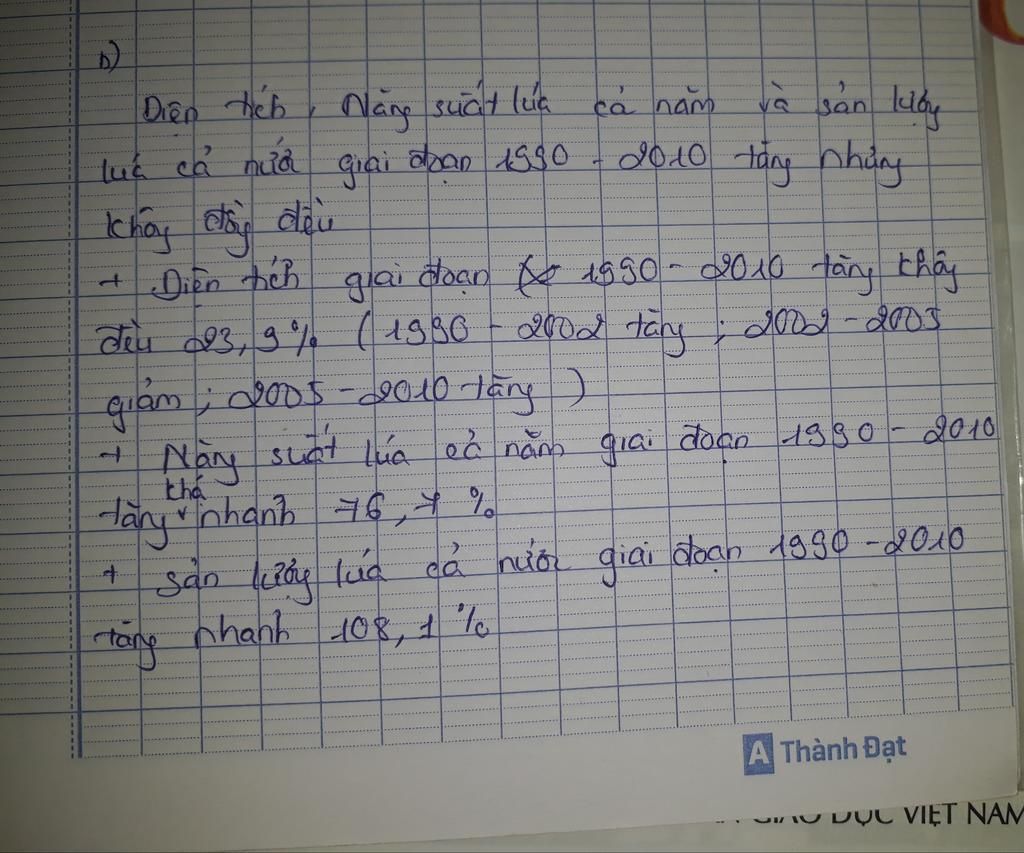 b)
Diện tích, Năng suất lúa cả năm và sản lượng
lúa cả nước giai đoạn 1990 - 2010 tăng nhưng
không đồng đều
+ Diện tích giai đoạn 1990 - 2010 tăng không
đều 23,9% (1990 - 2002 tăng; 2002 - 2005
giảm; 2005 - 2010 tăng)
+ Năng suất lúa cả năm giai đoạn 1990 - 2010
khá
tăng v nhanh 76,7 %
+ sản lượng lúa cả nước giai đoạn 1990 - 2010
tăng nhanh 108,1 %
A Thành Đạt
GIÁO DỤC VIỆT NAM